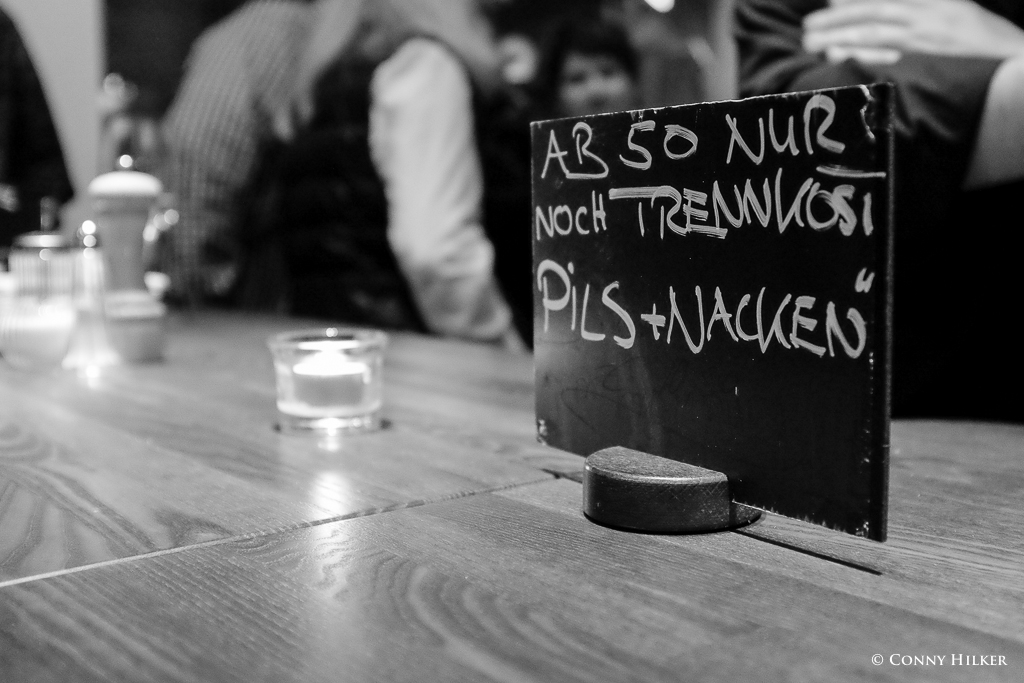 AB 50 NUR
NOCH TRENNKOST
"PILS + NACKEN"
© CONNY HILKER